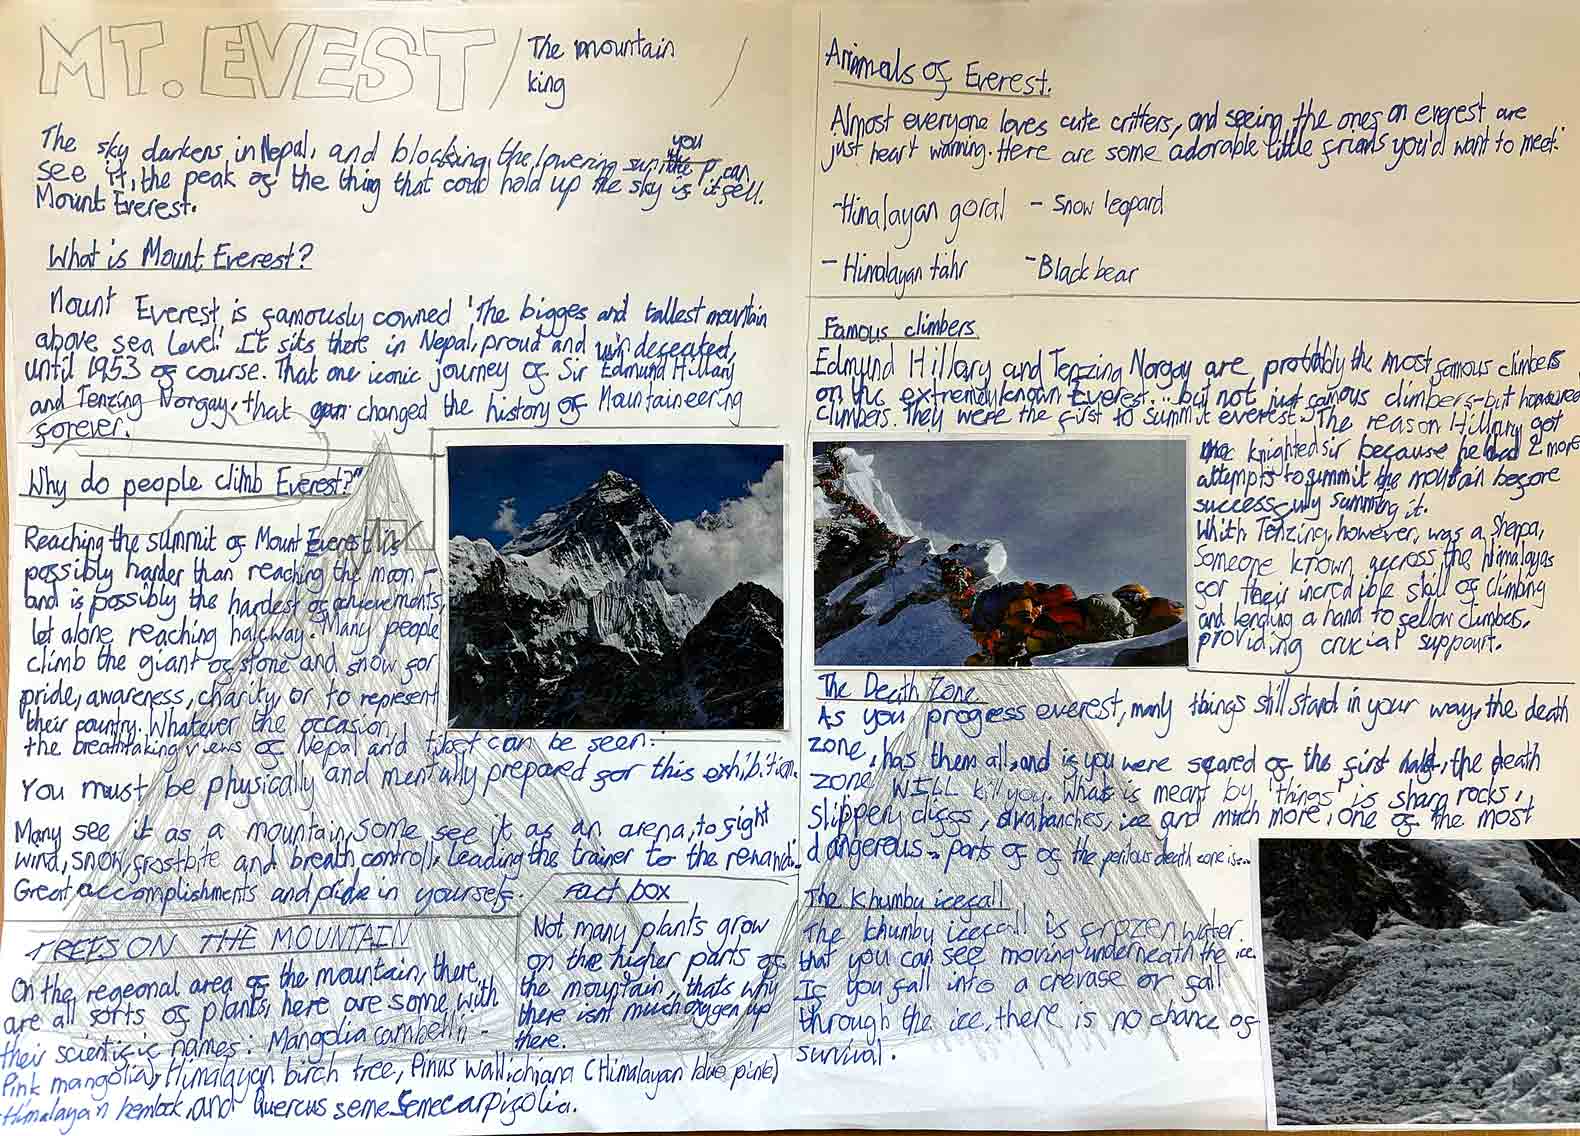 MT. EVEST / The mountain /
king
The sky darkens in Nepal, and blocking the lowering sun, you can
see it, the peak of the thing that could hold up the sky is itself.
Mount Everest.
What is Mount Everest?
Mount Everest is famously cowned 'The bigges and tallest mountain
above sea level.' It sits there in Nepal, proud and un defeated,
until 1953 of course. That one iconic journey of Sir Edmund Hillary
and Tenzing Norgay, that changed the history of Mountaineering
forever.
Why do people climb Everest?"
Reaching the summit of Mount Everest is
possibly harder than reaching the moon -
and is possibly the hardest of achievements,
let alone reaching halfway. Many people
climb the giant of stone and snow for
pride, awareness, charity, or to represent
their country. Whatever the occasion,
the breathtaking views of Nepal and tibet can be seen.
You must be physically and mentally prepared for this exhibition.
Many see it as a mountain, some see it as an arena, to fight
wind, snow, frostbite and breath control, leading the trainer to the reward...
Great accomplishments and pride in yourself.
TREES ON THE MOUNTAIN
On the regeonal area of the mountain, there
are all sorts of plants, here are some with
their scientific names: Mangolia cambelli -
Pink mangolia, Himalayan birch tree, Pinus wallichiana (Himalayan blue pine)
Himalayan hemlock, and Quercus seme Semecarpifolia.
Fact box
Not many plants grow
on the higher parts of
the mountain, thats why
there isnt much oxygen up
there.
Animals of Everest.
Almost everyone loves cute critters, and seeing the ones on everest are
just heart warming. Here are some adorable little friends you'd want to meet:
-Himalayan goral - Snow leopard
- Himalayan tahr - Black bear
Famous climbers
Edmund Hillary and Tenzing Norgay are probably the most famous climbers
on the extremely known Everest... but not just famous climbers - but honoured
climbers. They were the first to summit everest. The reason Hillary got
knighted sir because he had 2 more
attempts to summit the mountain before
successfully summing it.
Whith Tenzing, however, was a Sherpa,
Someone known accross the Himalayas
for their incredible skill of climbing
and lending a hand to fellow climbers,
providing crucial suppourt.
The Death Zone
As you progress everest, many things still stand in your way, the death
zone, has them all, and if you were scared of the first half, the death
zone WILL kill you. What is meant by 'things' is sharp rocks,
slippery cliffs, avalanches, ice and much more, one of the most
dangerous parts of of the perilous death zone is...
The Khumbu icefall
The khumbu icefall is frozen water
that you can see moving underneath the ice.
If you fall into a crevase or fall
through the ice, there is no chance of
survival.